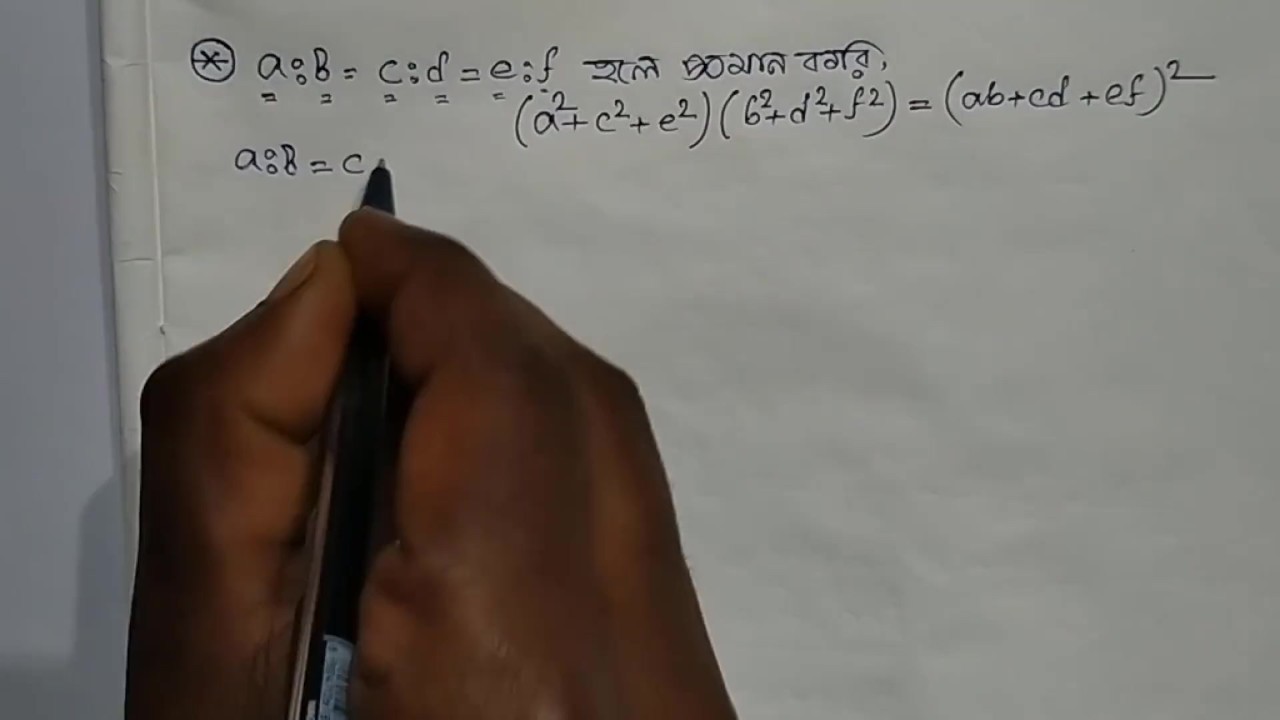 ⊛ a:B = c:d = e:f হলে প্রমান করি,
(a²+c²+e²)(b²+d²+f²) = (ab+cd+ef)²
a:B = c